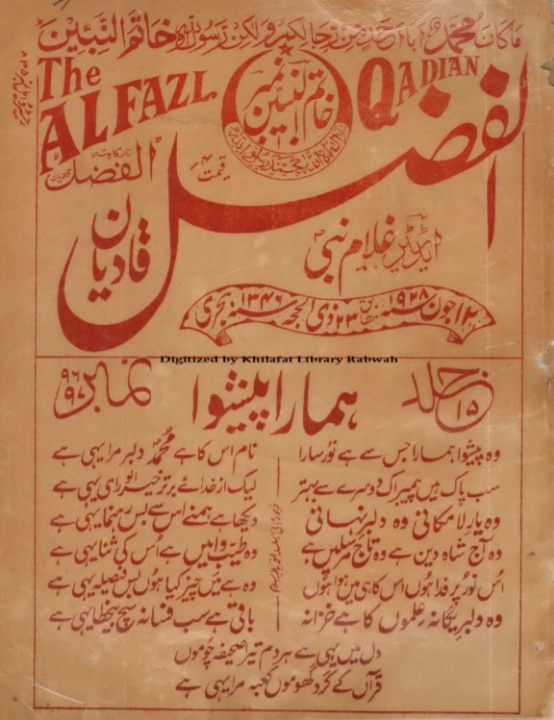 ماکان محمد ابا احد من رجالکم ولکن رسول اللہ خاتم النبیین
The
ALFAZL
QADIAN
خاتم النبیین نمبر
تار کا پتہ
الفضل قادیان
قیمت ۴؍
الفضل
قادیان
ایڈیٹر غلام نبی
۱۲ جون ۱۹۲۸ سنہ مطابق ۲۳ ذی الحجہ سنہ ۱۳۴۶ ہجری
Digitized by Khilafat Library Rabwah
جلد ۱۵
ہمارا پیشوا
نمبر ۹۶ ۹۷
وہ پیشوا ہمارا جس سے ہے نور سارا
نام اس کا ہے محمدؐ دلبر مرا یہی ہے
سب پاک ہیں پیمبر اک دوسرے سے بہتر
لیک از خدائے برتر خیر الوریٰ یہی ہے
وہ یار لامکانی وہ دلبر نہانی
دیکھا ہے ہمنے اس سے بس رہنما یہی ہے
وہ آج شاہ دین ہے وہ تاج مرسلیں ہے
وہ طیب و امیں ہے اس کی ثنا یہی ہے
اس نور پر فدا ہوں اس کا ہی میں ہوا ہوں
وہ ہے میں چیز کیا ہوں بس فیصلہ یہی ہے
وہ دلبر یگانہ علموں کا ہے خزانہ
باقی ہے سب فسانہ سچ بےخطا یہی ہے
دل میں یہی ہے ہر دم تیرا صحیفہ چوموں
قرآں کے گرد گھوموں کعبہ مرا یہی ہے